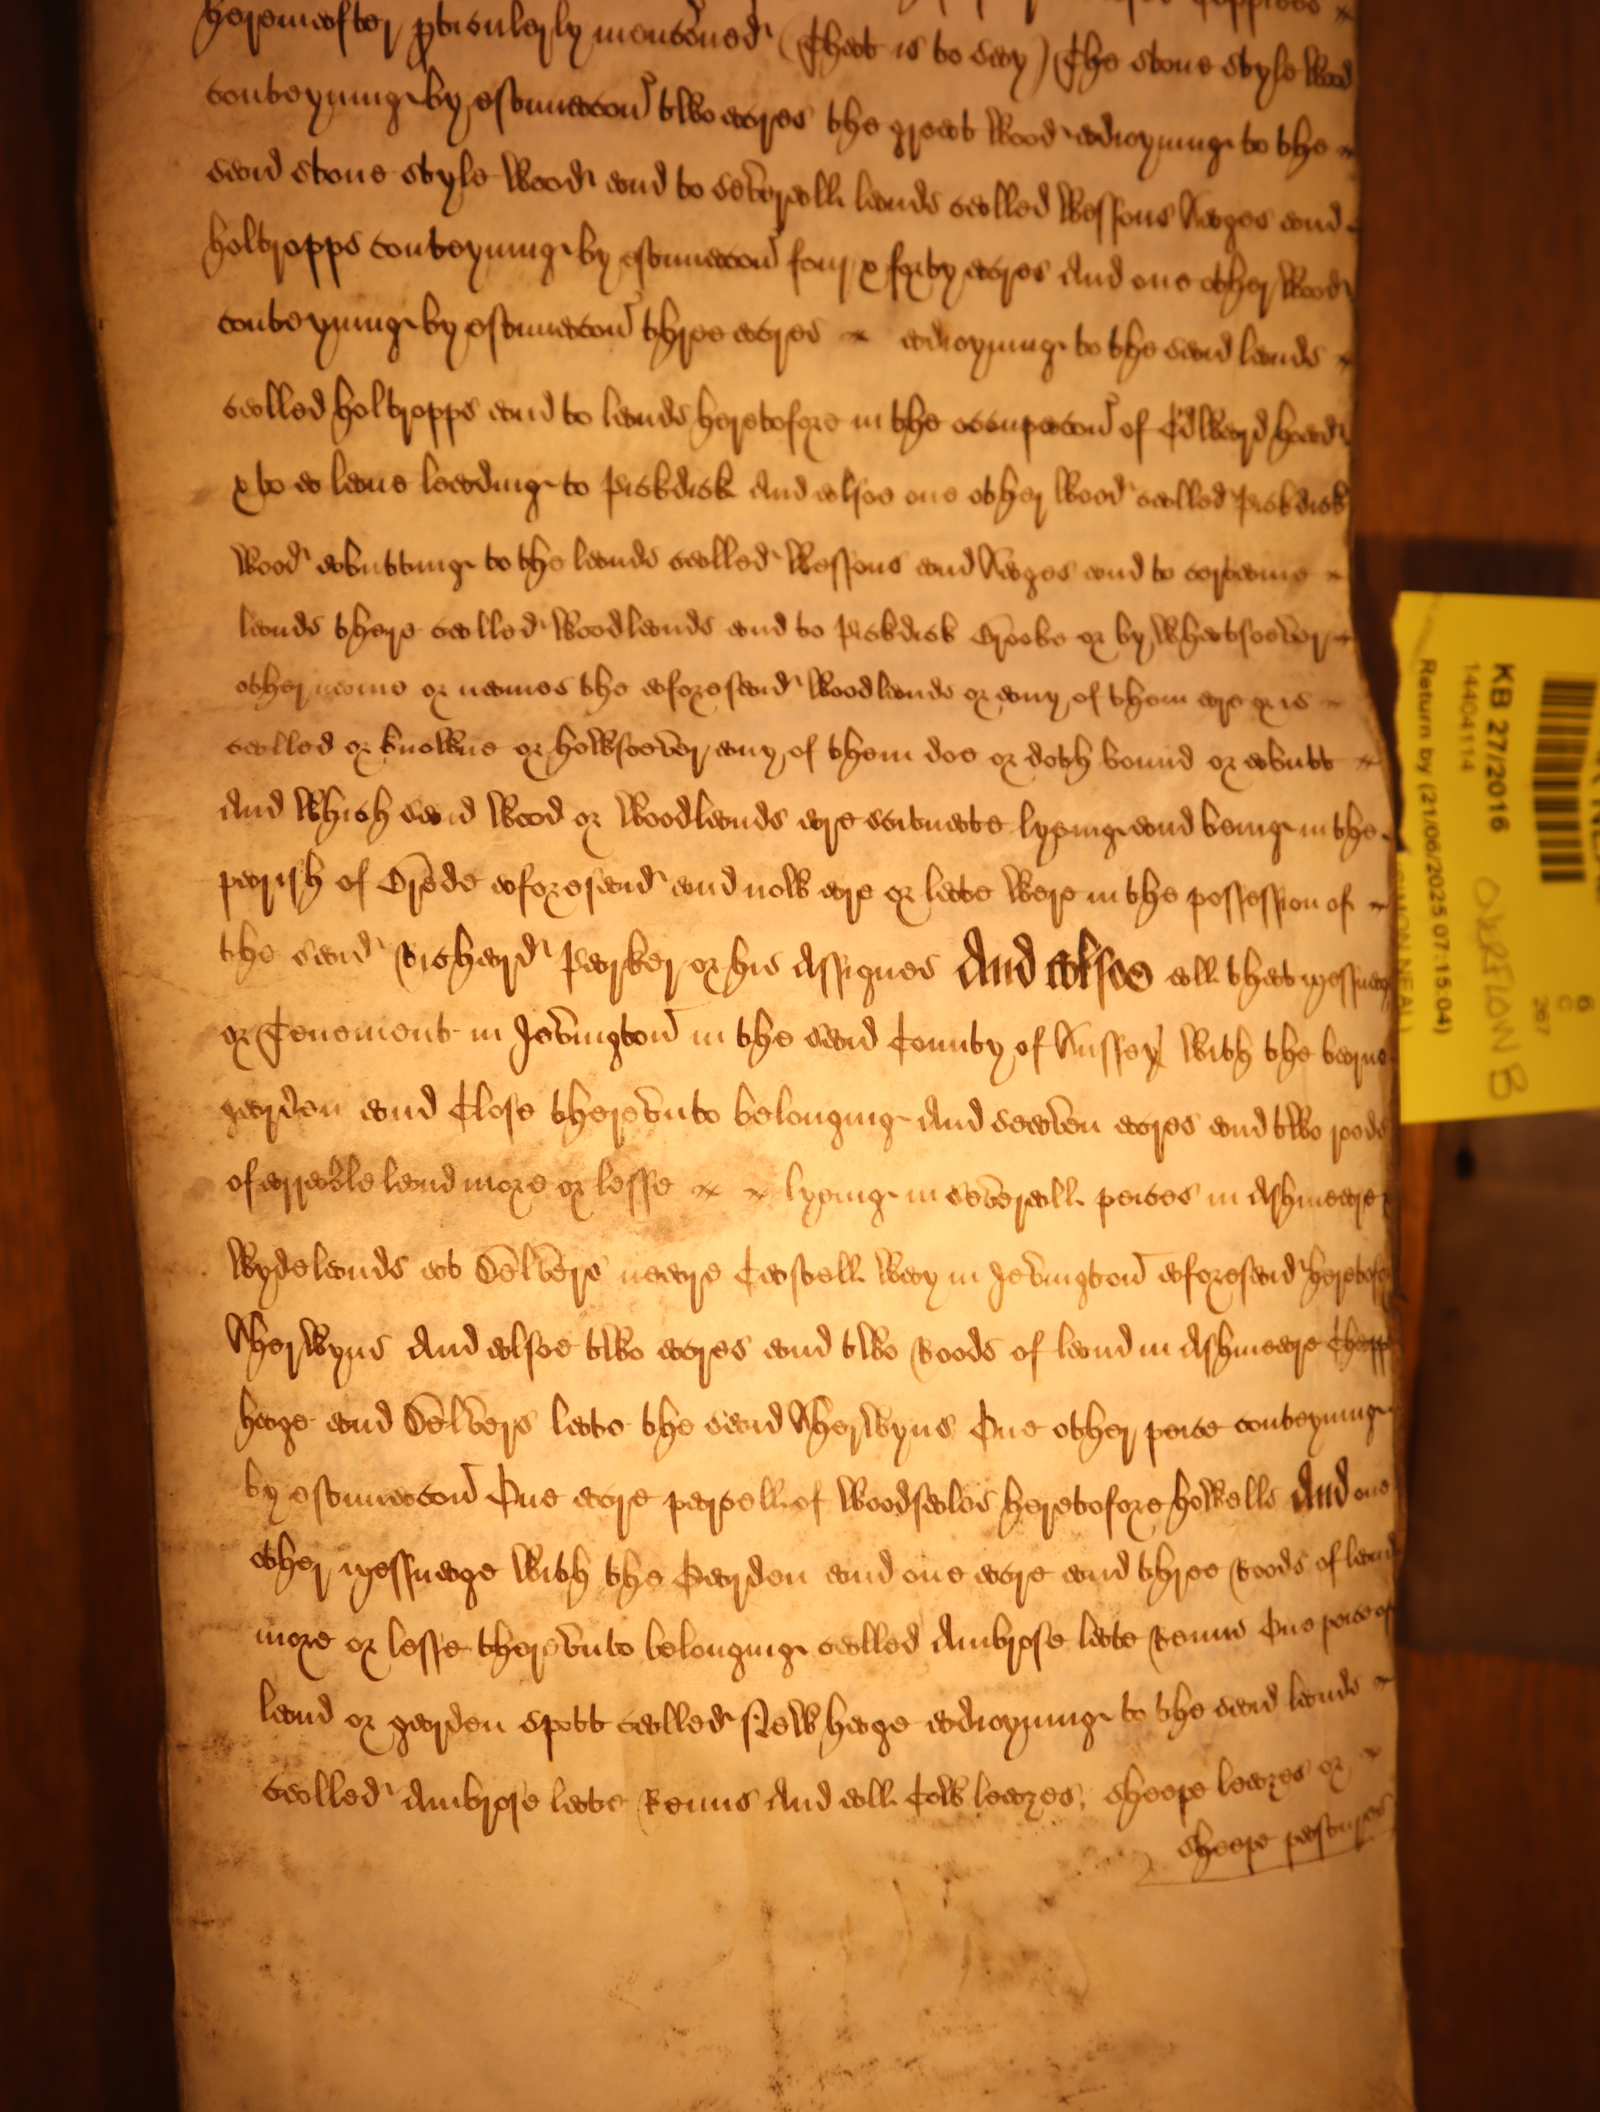 hereinafter pticulerly mencõned (That is to say) The stone style Wood
conteyning by estimacon two acres the great Wood adioyning to the
said stone style Wood and to severall lands called Wessons Hages and
holtropps conteyning by estimacon four & forty acres And one other Wood
conteyning by estimacon three acres adioyning to the said lands
called holtropps and to lands heretofore in the occupacon of Edward
& to a lane leading to Pickdick And alsoe one other Wood called Pickdick
Wood abutting to the lands called Wessons and Hages and to certaine
lands there called Woodlands and to Pickdick Brooke or by Whatsoever
other name or names the aforesaid Woodlands or any of them are or is
called or knowne or howsoever any of them doe or doth bound or abutt
And Which said Wood or Woodlands are scituate lyeing and being in the
parish of Brede aforesaid and now are or late were in the possession of
the said Richard Parker or his Assignes And alsoe all that messuage
or Tenement in Jevington in the said County of Sussex With the barne
garden and Close therevnto belonging And seaven acres and two roods
of arrable land more or lesse lyeing in severall peices in Ashmeare
Wydelands at neare Castell Way in Jevington aforesaid heretofore
Sherwyns And alsoe two acres and two roods of land in Ashmeare
hage and late the said Sherwyns One other peice conteyning
by estimacon One acre parcell of heretofore howells And one
other messuage With the Garden and one acre and three roods of land
more or lesse therevnto belonging called Ambrose late Renns One peice of
land or garden spott called New hage adioyning to the said lands
called Ambrose late Renns And all Cow leazes, sheepe leazes or
sheepe pastures
KB 27/2016
14404114
Return by (21/06/2025 07:15:04)
SIMON NEAL
OVERFLOW B
267